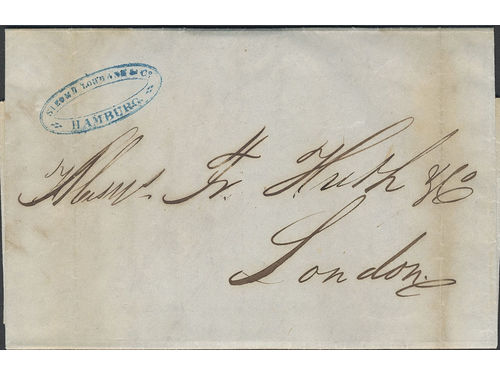 SIEGMD LOHMANN & Co
HAMBURG
Messrs. Fr. Huth & Co
London.